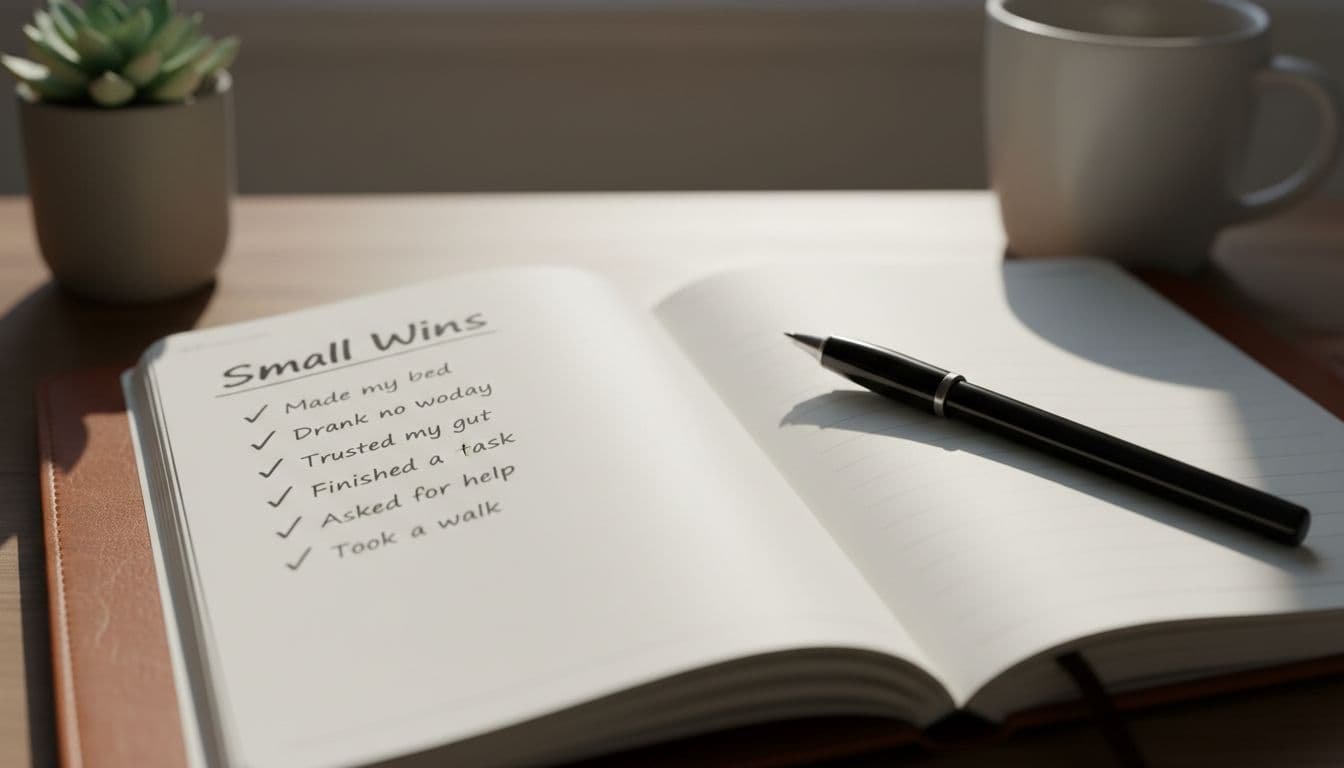 Small Wins
✓ Made my bed
✓ Drank no woday
✓ Trusted my gut
✓ Finished a task
✓ Asked for help
✓ Took a walk